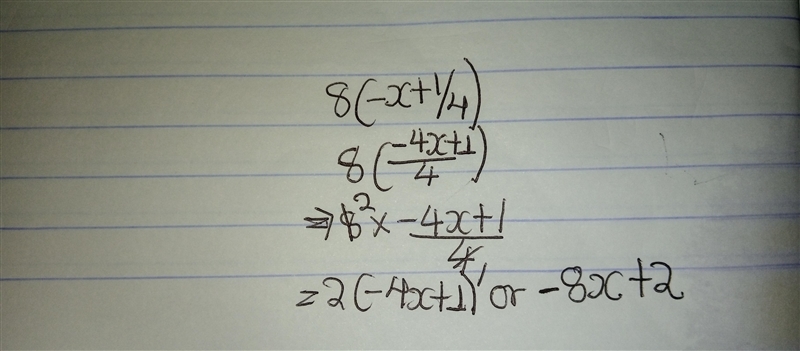 8(-x+1/4)
8(-4x+1/4)
⇒ 8² × -4x+1/4¹
= 2(-4x+1) or -8x+2